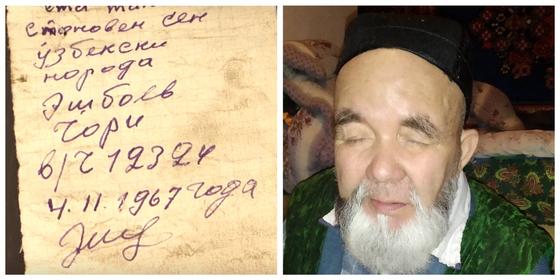 становен сен
узбекски
народа
Эшбоев
Чори
в/ч 12324
4.11.1967 года